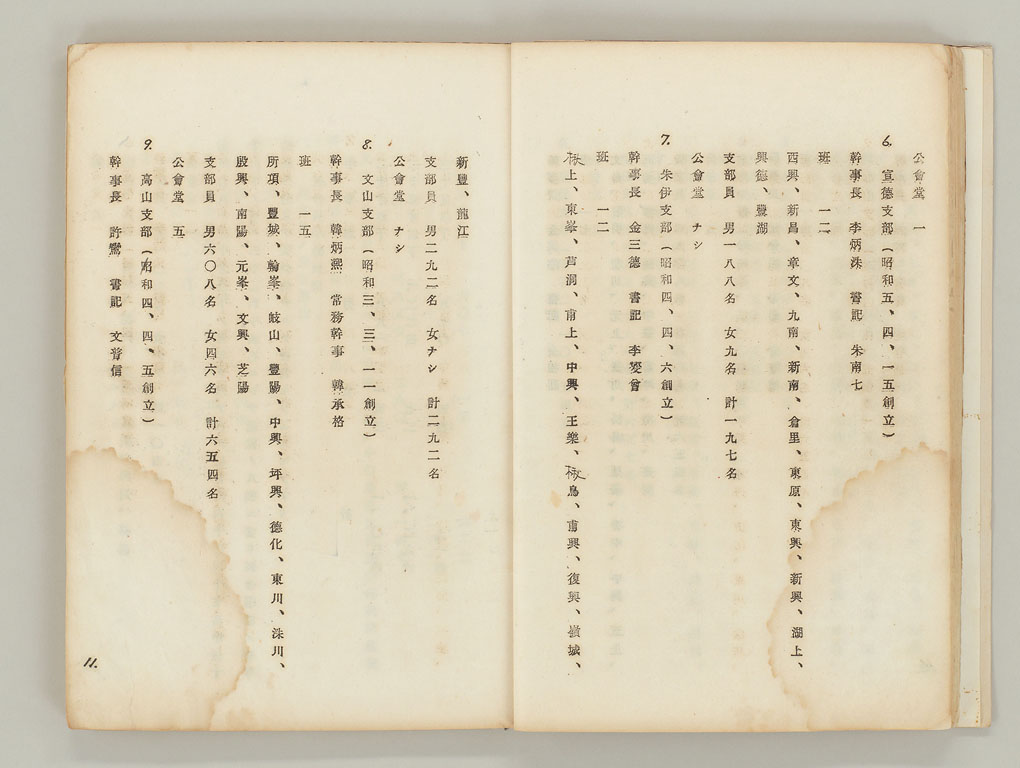 公會堂 一
6. 宣德支部(昭和五、四、一五創立)
幹事長 李炳洙 書記 朱南七
班 一二
西興、新昌、章文、九南、新南、倉里、東原、東興、新興、湖上、
興德、豐湖
支部員 男一八八名 女九名 計一九七名
公會堂 ナシ
7. 朱伊支部(昭和四、四、六創立)
幹事長 金三德 書記 李燮曾
班 一二
上、東峯、芦洞、甫上、中興、王樂、島、甫興、復興、嶺城、
新豐、龍江
支部員 男二九二名 女ナシ 計二九二名
公會堂 ナシ
8. 文山支部(昭和三、三、一一創立)
幹事長 韓炳熙 常務幹事 韓承格
班 一五
所項、豐城、輪峯、岐山、豐陽、中興、坪興、德化、東川、洙川、
殷興、南陽、元峯、文興、芝陽
支部員 男六〇八名 女四六名 計六五四名
公會堂 五
9. 高山支部(昭和四、四、五創立)
幹事長 許鸞 書記 文普信
11.